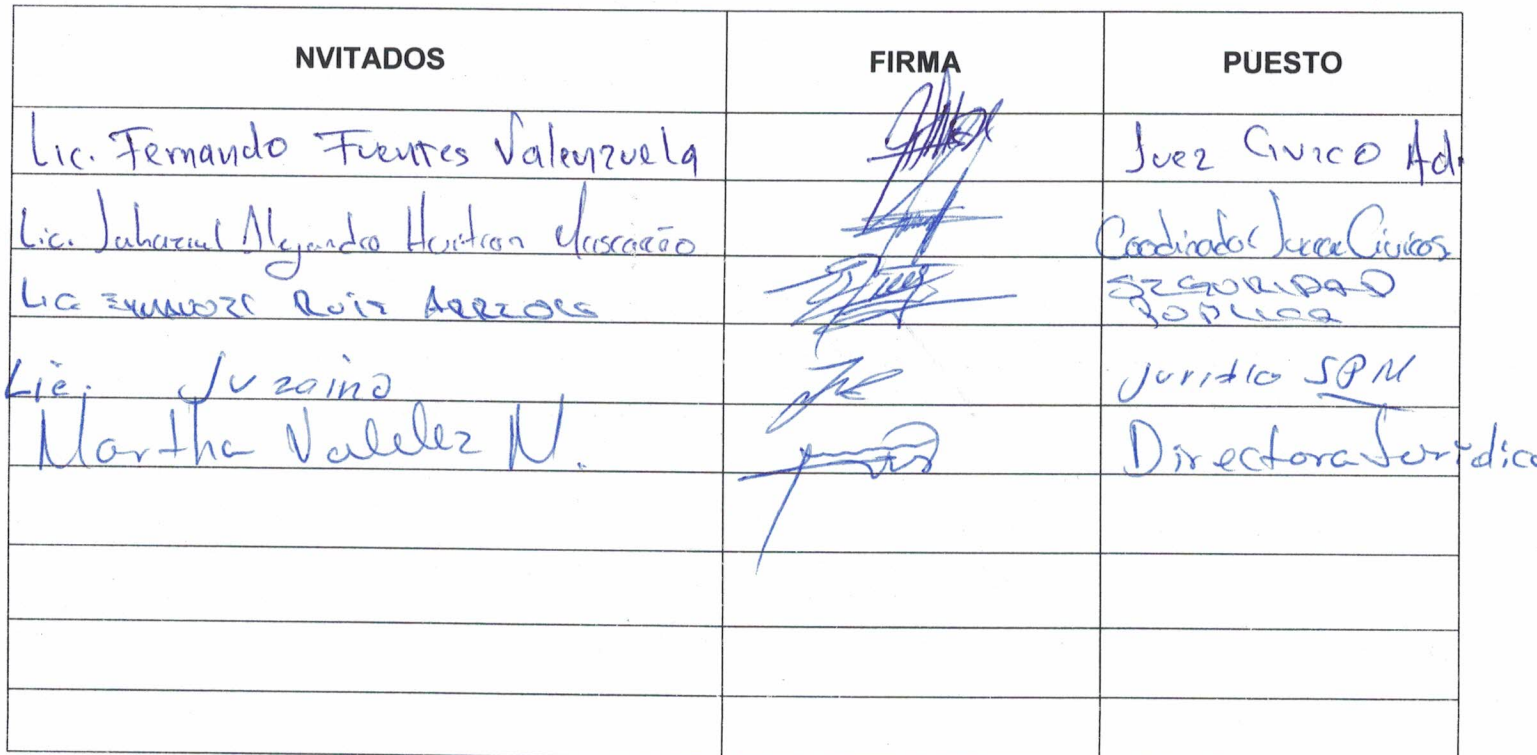 NVITADOS FIRMA PUESTO
Lic. Fernando Fuentes Valenzuela Juez Civico Adr
Lic. Alejandro Huitron Coordinador Jueces Cívicos
Lic Ruiz Arreola SEGURIDAD
PUBLICA
Lic. Juridico SPM
Martha Valdez N. Directora Jurídica